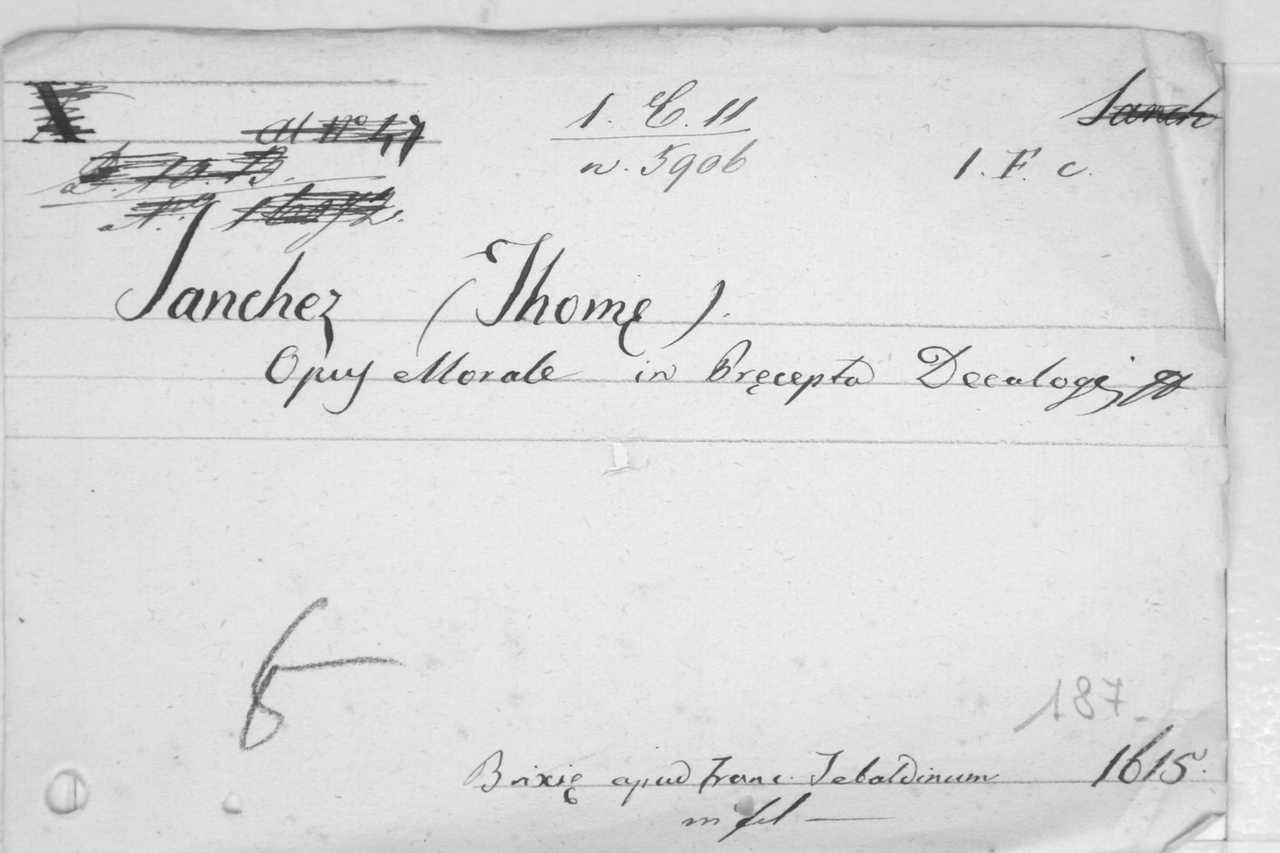 X
ad Nº 47
1. C. 11
n. 5906
Sanch
1. F. c.
Sanchez (Thomę).
Opus Morale in Pręcepta Decalogi
6
187
Brixię apud Franc. Tebaldinum 1615.
in fol —